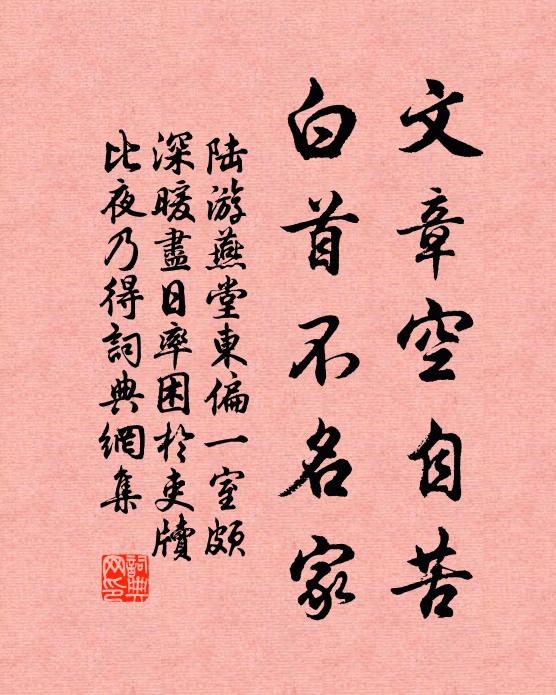 文章空自苦
白首不名家
陆游燕堂東偏一室頗
深暖盡日率困於吏牘
比夜乃得詞典網集
詞典
网印